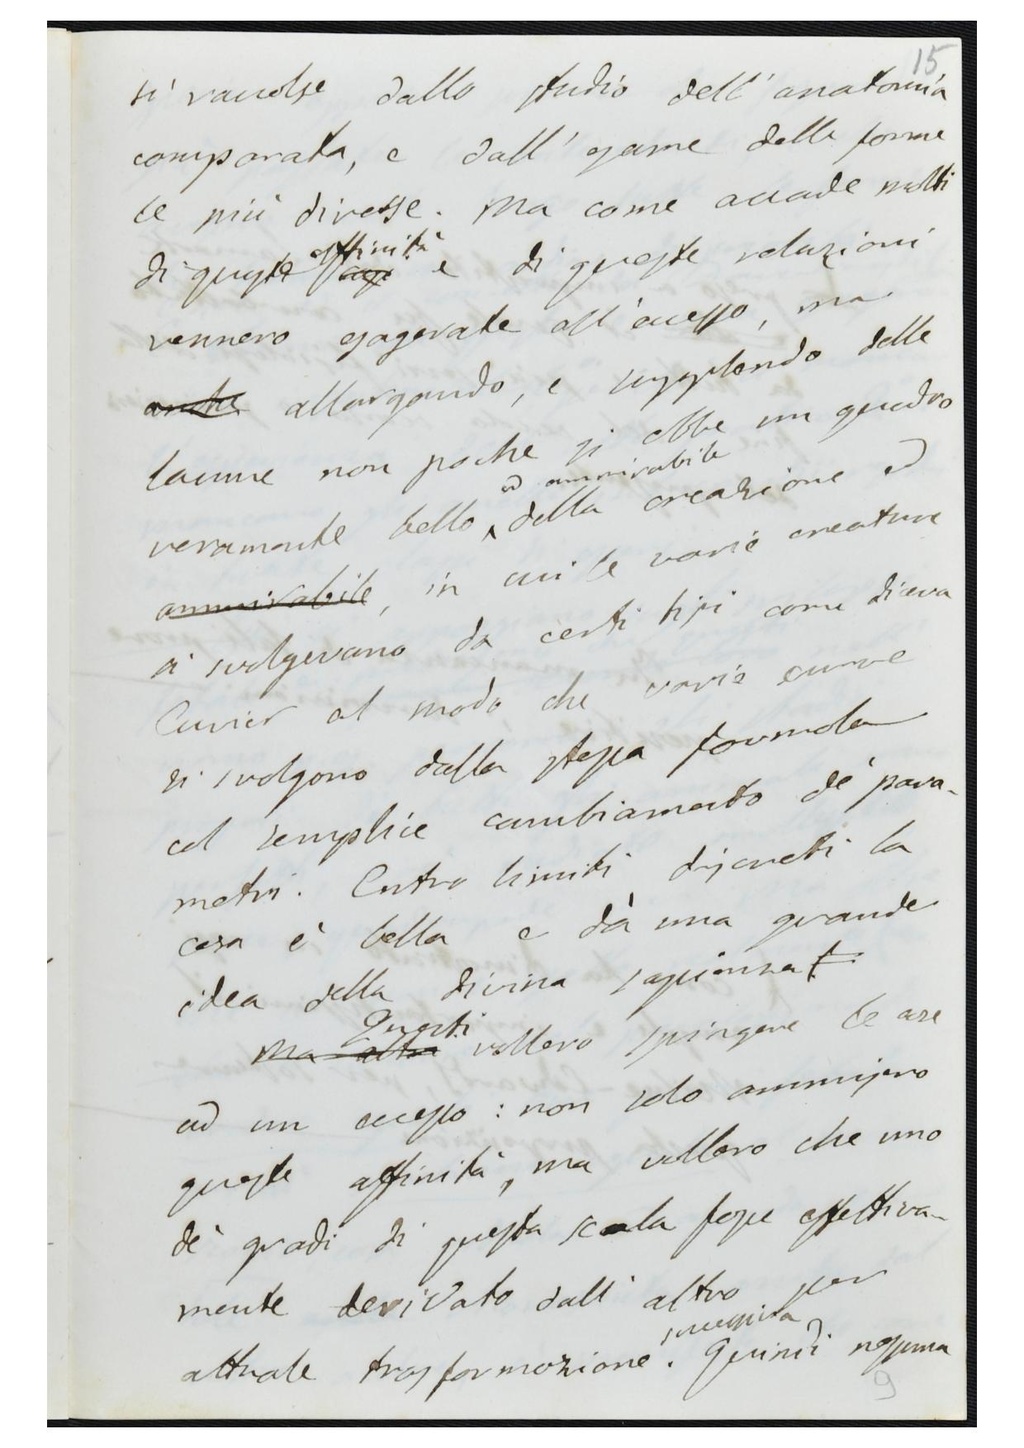 15
si raccolse dallo studio dell'anatomia
comparata, e dall'esame delle forme
le più diverse. Ma come accade molti
affinità
di queste e di queste relazioni
vennero esagerate all'eccesso, ma
anche allargando, e supplendo delle
lacune non poche si ebbe un quadro
ed ammirabile
veramente bello della creazione ed
ammirabile, in cui le varie creature
si svolgevano da certi tipi come diceva
Cuvier al modo che varie curve
si svolgono dalla stessa formola
col semplice cambiamento de' para-
metri. Entro limiti discreti la
cosa è bella e dà una grande
idea della divina sapienza
Questi
Ma altri vollero spingere le cose
ad un eccesso: non solo ammisero
queste affinità, ma vollero che uno
de' gradi di questa scala fosse effettiva-
mente derivato dall'altro per
successiva
attuale trasformazione. Quindi nessuna
9